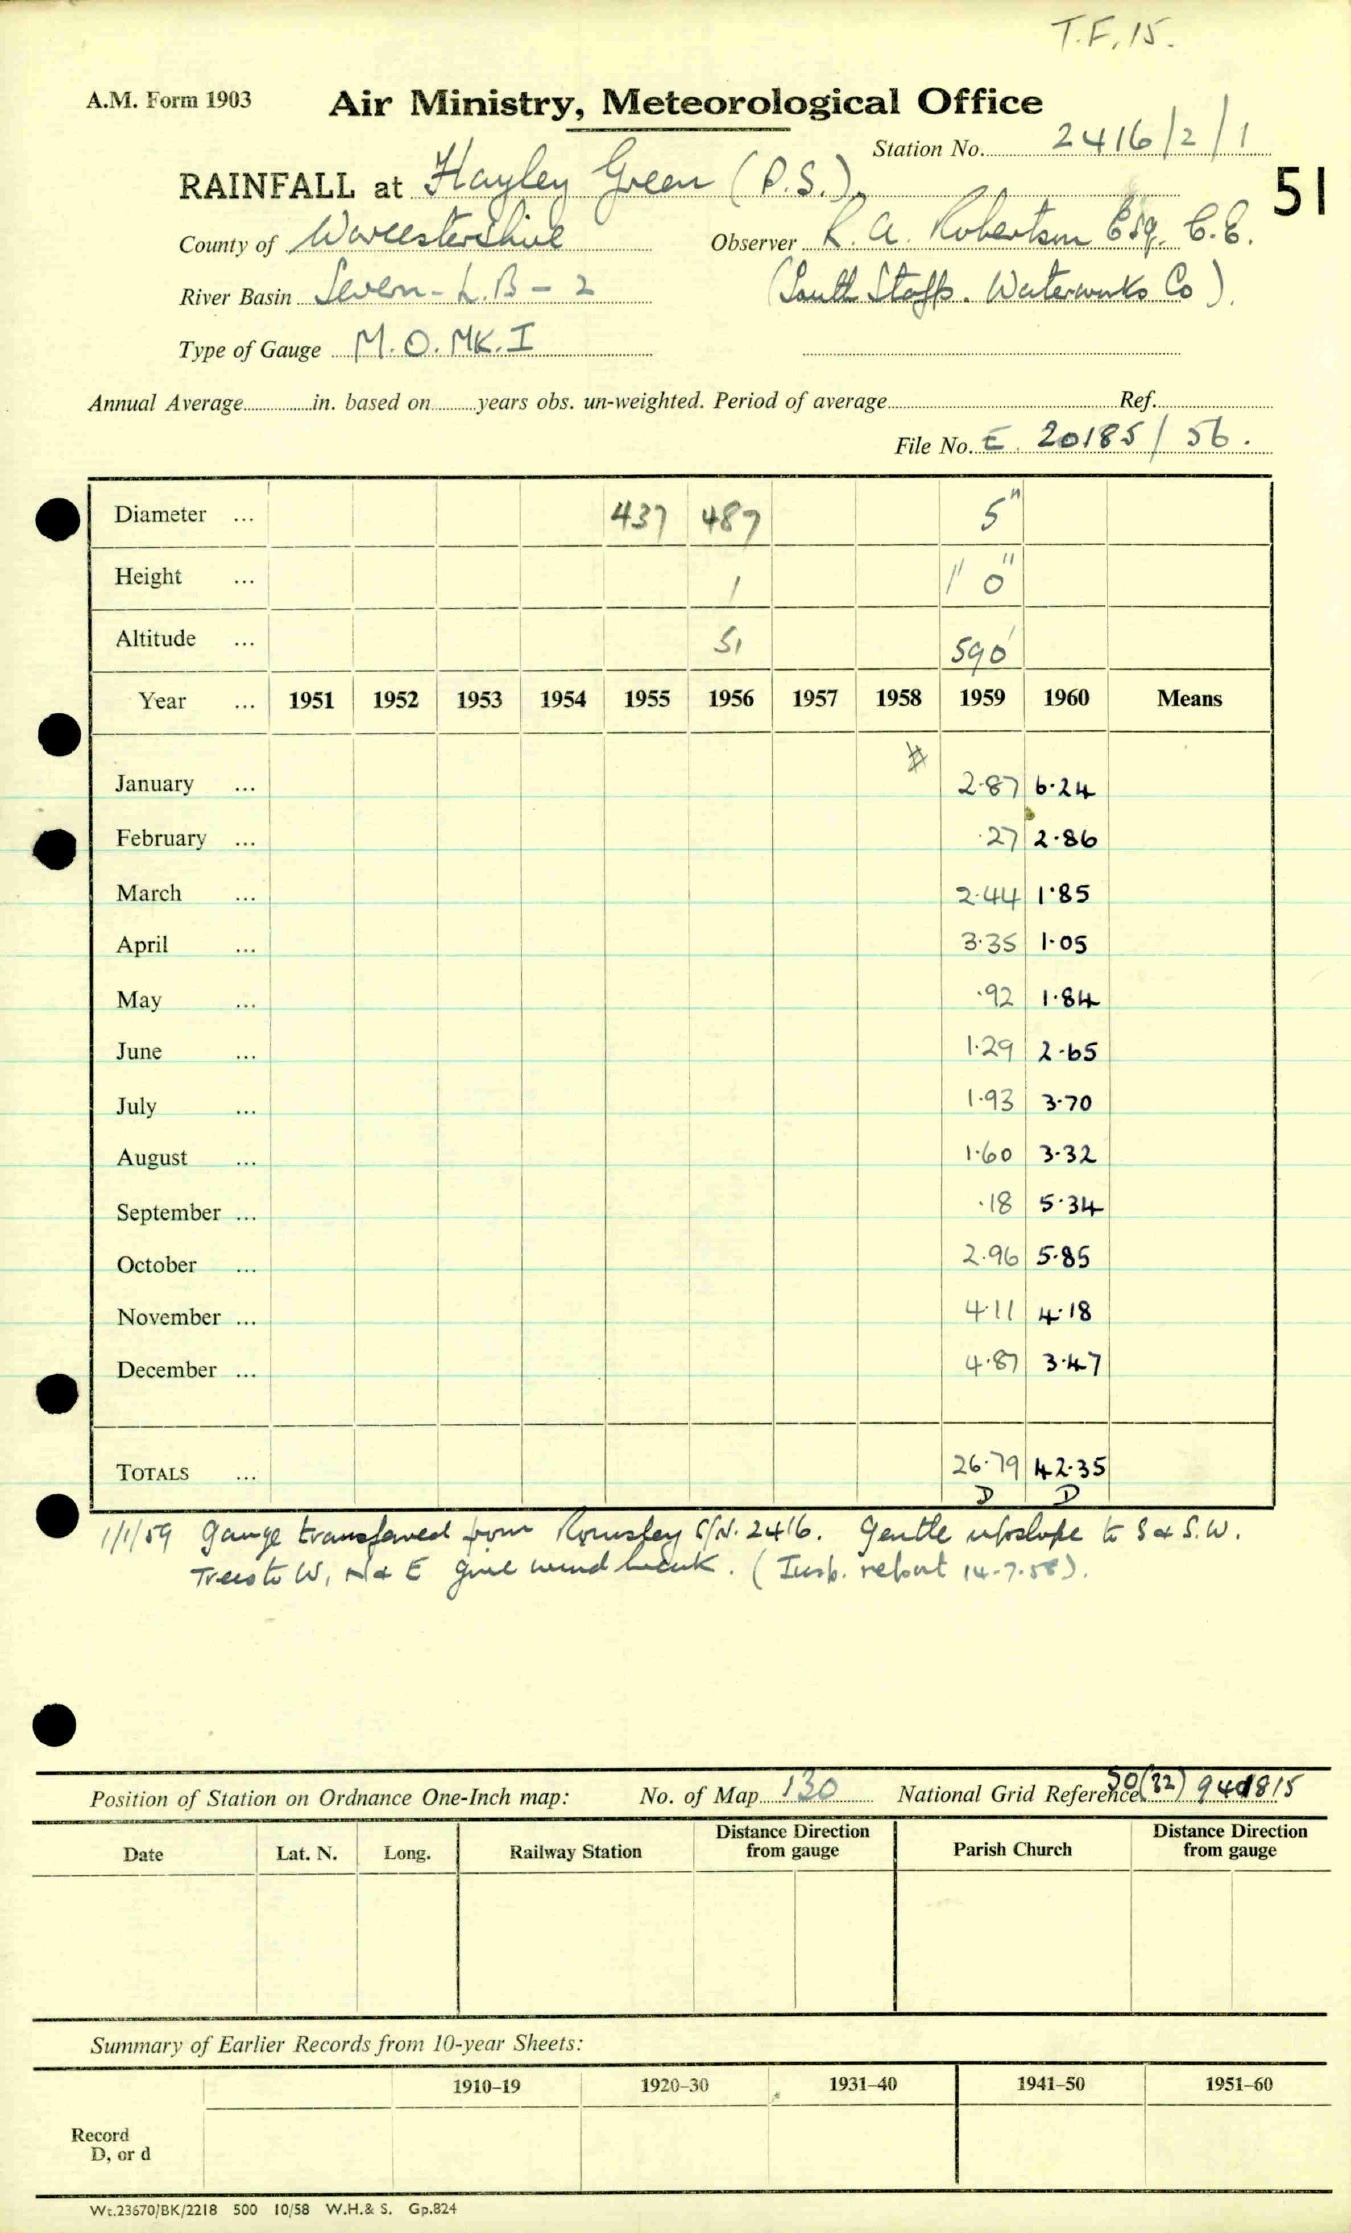 T.F. 15.
A.M. Form 1903 Air Ministry, Meteorological Office
Station No. 2416/2/1
RAINFALL at Hayley Green (P.S.) 51
County of Worcestershire Observer R. A. Robertson Esq. C.E.
River Basin Severn - L.B - 2 (South Staffs. Waterworks Co).
Type of Gauge M.O. MK. I
Annual Average in. based on years obs. un-weighted. Period of average Ref.
File No. E. 20185/56.
Diameter ... 437 487 5"
Height ... 1 1' 0"
Altitude ... 51 590'
Year ... 1951 1952 1953 1954 1955 1956 1957 1958 1959 1960 Means
January ... 2.87 6.24
February ... .27 2.86
March ... 2.44 1.85
April ... 3.35 1.05
May ... .92 1.84
June ... 1.29 2.65
July ... 1.93 3.70
August ... 1.60 3.32
September ... .18 5.34
October ... 2.96 5.85
November ... 4.11 4.18
December ... 4.87 3.47
TOTALS ... 26.79 42.35
D D
1/1/59 Gauge transferred from Romsley S/N. 2416. Gentle upslope to S & S.W.
Trees to W, N & E give wind break. (Insp. report 14-7-58).
Position of Station on Ordnance One-Inch map: No. of Map 130 National Grid Reference SO(32) 940815
Date Lat. N. Long. Railway Station Distance Direction from gauge Parish Church Distance Direction from gauge
Summary of Earlier Records from 10-year Sheets:
1910–19 1920–30 1931–40 1941–50 1951–60
Record
D, or d
Wt.23670/BK/2218 500 10/58 W.H.& S. Gp.824